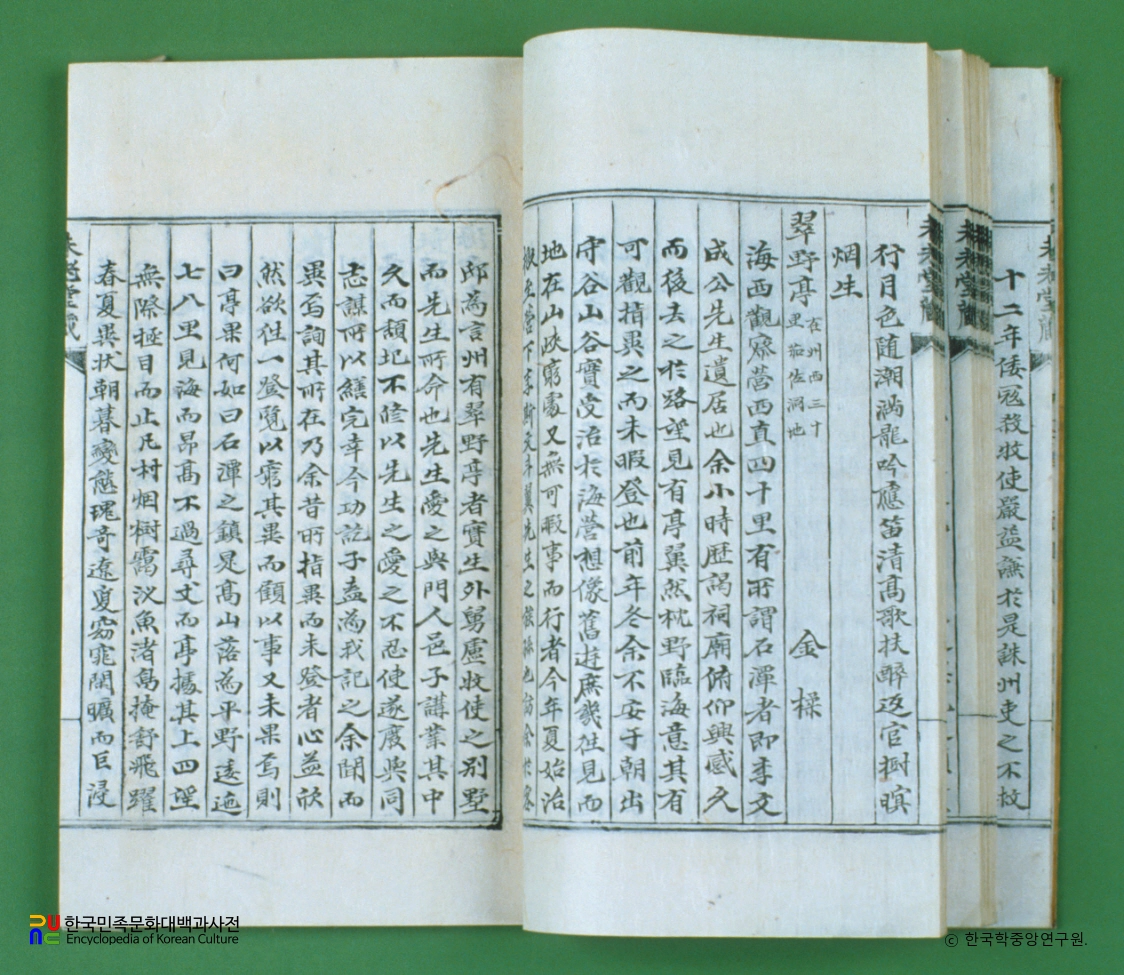 十二年倭寇殺牧使嚴益謙於是誅州吏之不救
行月色随潮滿龍吟應笛清高歌扶醉返官樹暝
烟生
翠野亭 在州西三十里茄佐洞地 金檪
海西觀察營西直四十里有所謂石潭者即李文
成公先生遺居也余小時歷謁祠廟俯仰興感久
而後去之於路望見有亭翼然枕野臨海意其有
可觀指異之而未暇登也前年冬余不安于朝出
守谷山谷山實受治於海營想像舊遊庶幾往見而
地在山峽窮處又無可暇事而行者今年夏始治
邸為言州有翠野亭者實生外舅盧牧使之別墅
而先生所命也先生愛之與門人邑子講業其中
久而頹圮不修以先生之愛之不忍使遂廢與同
志謀所以繕完幸今功訖子盍為我記之余聞而
異焉詢其所在乃余昔所指異而未登者心益欣
然欲往一登覽以窮其異而顧以事又未果焉則
曰亭果何如曰石潭之鎮是高山落為平野逶迤
七八里見海而昻高不過尋丈而亭據其上四望
無際極目而止凡村烟樹靄汊魚渚島掩舒飛躍
春夏異状朝暮變態瑰奇遼敻窈窕閑曠而巨浸
한국민족문화대백과사전
Encyclopedia of Korean Culture
© 한국학중앙연구원.